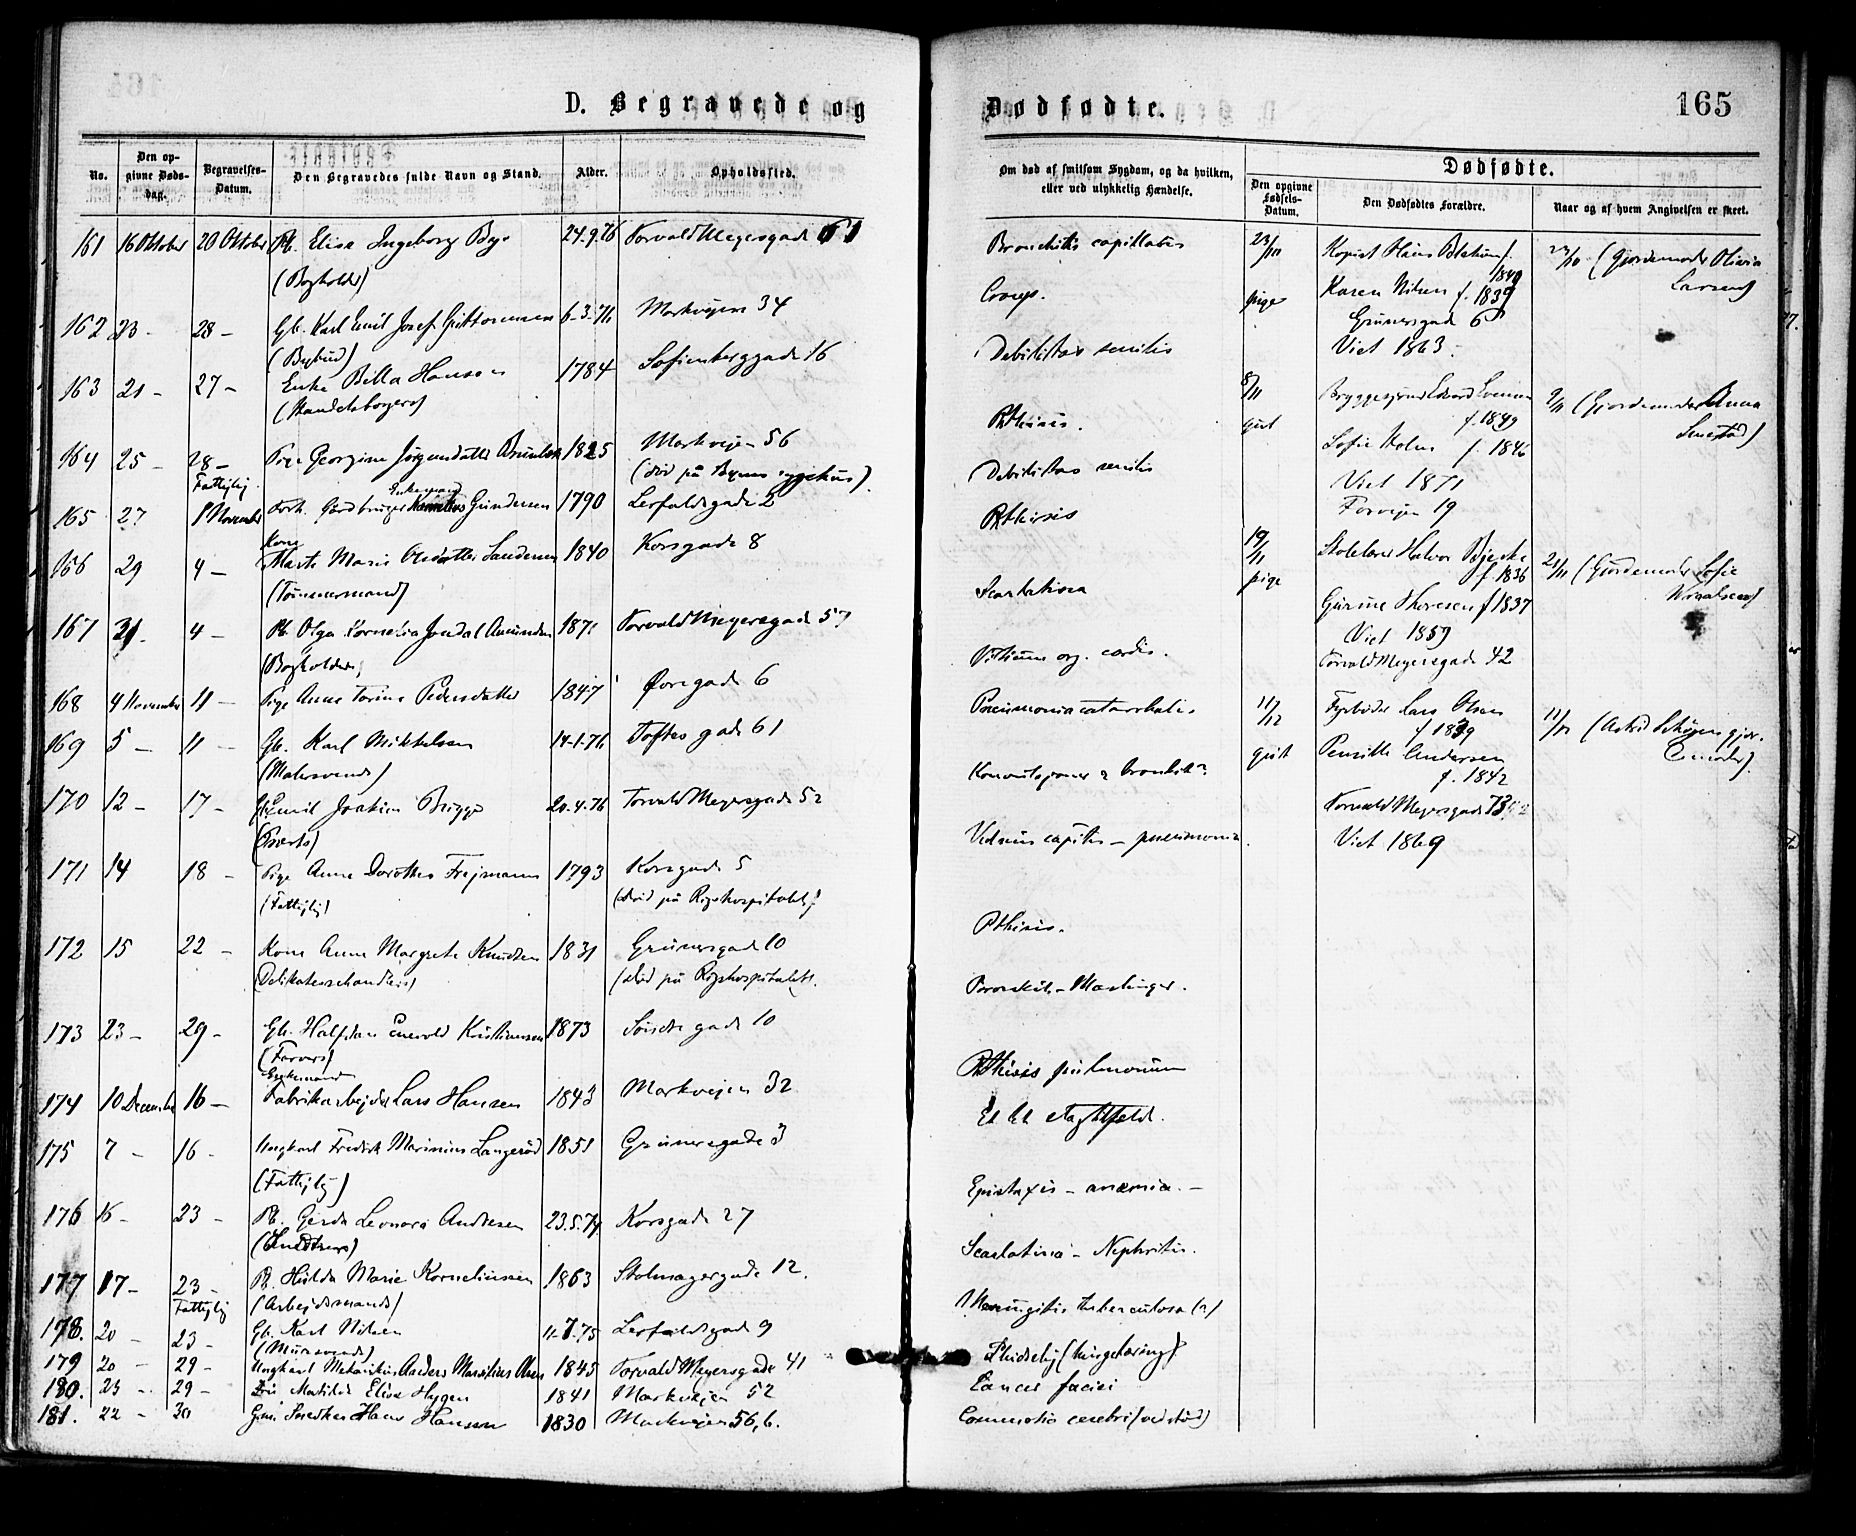 D. Begravede og
Dødfødte.
165
No.
Den opgivne Dødsdag.
Begravelses-Datum.
Den Begravedes fulde Navn og Stand.
Alder.
Opholdssted.
Om død af smitsom Sygdom, og da hvilken, eller ved ulykkelig Hændelse.
Dødfødte.
Den opgivne Fødsels-Datum.
Den Dødfødtes Forældre.
Naar og af hvem Angivelsen er skeet.
161 16 Oktober 20 Oktober Pb. Elisa Ingeborg 24.9.76 Torvald Meyersgade 61
(Bogholder)
162 23 - 28 - Gb. Karl Emil Josef Guttormsen 6-3-76 Markvejen 34
(Bybud)
163 21 - 27 - Enke Hansen 1784 Sofienberggade 16
164 25 - 28 - Pige Georgine Jørgensdatter 1825 Markvejen 56
Fattiglig (død på Byens sygehus).
Enkemand
165 27 1 November Gårdbruger Gundersen 1790 Lerfaldsgade 2
Kone
166 29 4 - Marte Marie Olsdatter Sandersen 1840 Korsgade 8
(Tømmermand)
167 31. 4 - Pb. Olga Kornelia Amundsen 1871 Torvald Meyersgade 57
(Bogholders)
168 4 November 11 - Pige Anne Torine Pedersdatter 1847 Øvregade 6
169 5 - 11 - Gb. Karl Mikkelsen 14-1-76 Toftes gade 61
(Malersvends)
170 12 - 17 - Gb. Emil Joakim Brigge 20-4-76 Torvald Meyersgade 52
171 14 18 - Pige Anne Dorothea Frejmann 1793 Korsgade 5
(Fattiglig) (død på Rigshospitalet)
172 15 22 - Kone Anne Margrete Knudsen 1831 Grünersgade 10
(Delikatessehandlers) (død på Rigshospitalet).
173 23 - 29 - Gb. Halfdan Enevold Kristiansen 1873 gade 10
(Farvers)
Enkemand
174 10 December 16 - Fabrikarbejder Lars Hansen 1843 Markvejen 32
175 7 - 16 - Ungkarl Fredrik Marinius Langerød 1851 Grünersgade 3
(Fattiglig)
176 16 - 23 - Pb. Gerda Leonora Andresen 23.5.74 Korsgade 27
177 17 - 23 - Pb. Hulda Marie Korneliussen 1863 Stolmagergade 12.
Fattiglig (Arbejdsmands)
178. 20 - 23 - Gb. Karl Nilsen 11-7.75 Lerfaldsgade 9
(Mursvends)
179 20 - 29 - Ungkarl Mekanikus Anders Marsilius Olsen 1845 Torvald Meyersgade 41
180. 23 - 29 - Matilde Elise Hygen 1841 Markvejen 52
181. 22 - 30 Snedker Hans Hansen 1830 Markvejen 56,b.
Bronchitis capillaris
Croup.
Debilitas senilis
Pthisis.
Debilitas senilis
Pthisis
Scarlatina
Vitium org. cordis.
Pneumonia catarrhalis
Konvulsjoner & bronkit?
Vulnus capitis - pneumonia.
Pthisis.
Bronkit. - Mæslinger.
Pthisis pulmonum
Et
Epistaxis - anæmia. -
Scarlatina - Nephritis.
Meningitis tuberculosa (?)
(tungetæring)
Cancer faciei
Commotio cerebri (ved stød)
23/10 Kopist Hans 23/10 (Gjordemoder Olivia Larsen)
f. 1840
pige Karen Nilsen f. 1839
Grünersgade 6
Viet 1863.
8/11 Bryggesjouer Edvard 9/11 (Gjordemoder Anna
gut f. 1849
Sofie Holm f. 1846
Viet 1871
Forvejen 19
19/11 Skolelærer Halvor 21/11 (Gjordemoder Sofie
pige f. 1836
Gurine Thoresen f 1837
Viet 1859
Torvald Meyersgade 42
11/12 Fyrbøder Lars Olsen 11/12 (Astrid gjordemoder).
f 1839
gut Pernille Andersen
f. 1842
Torvald Meyersgade 73
Viet 1869